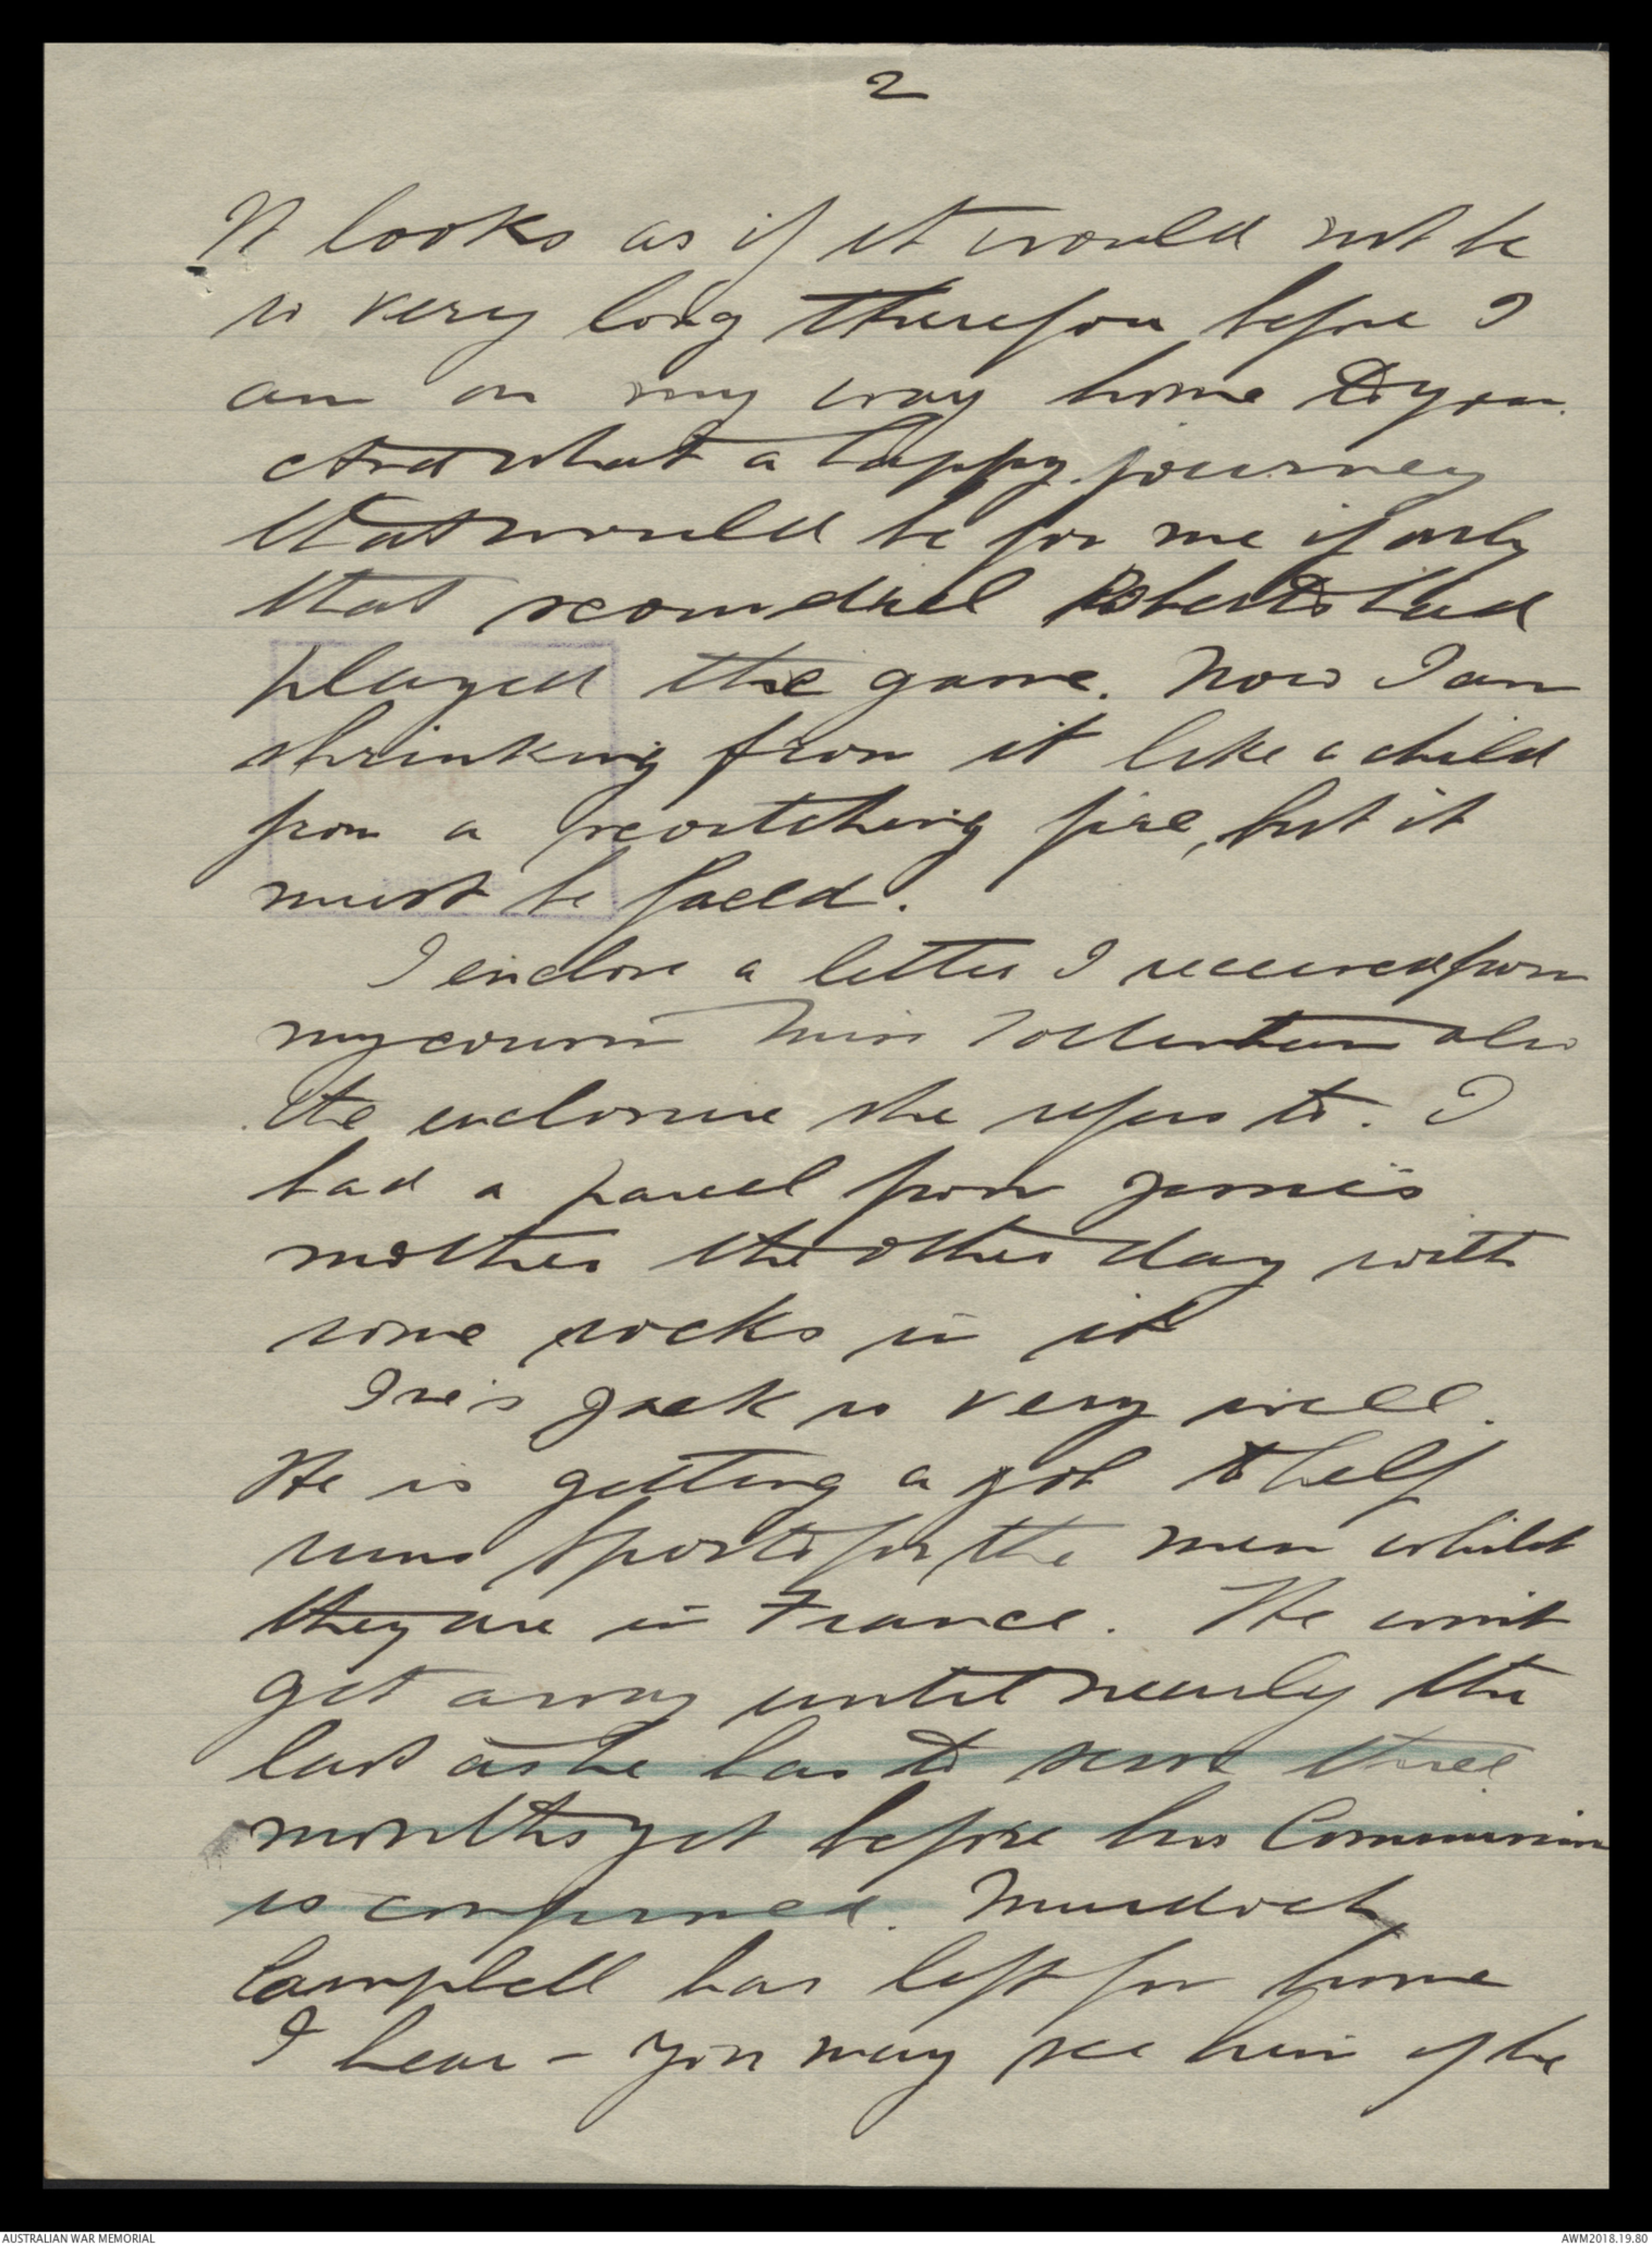 2
It looks as if it would not be
so very long therefore before I
am on my way home to you.
And what a happy journey
that would be for me if only
that scoundrel Roberts had
played the game. Now I am
shrinking from it like a child
from a scortching fire, but it
must be faced.
I enclose a letter I received from
my cousin Miss also
the enclosure she refers to. I
had a parcel from Jennie's
mother the other day with
some socks in it
Ive's Jack is very well.
He is getting a job to help
runs sports for the men whilst
they are in France. He wont
get away until nearly the
last as he has to serve three
months yet before his Commission
is confirmed. Murdoch
Campbell has left for home
I hear - you may see him if he
AUSTRALIAN WAR MEMORIAL
AWM2018.19.80